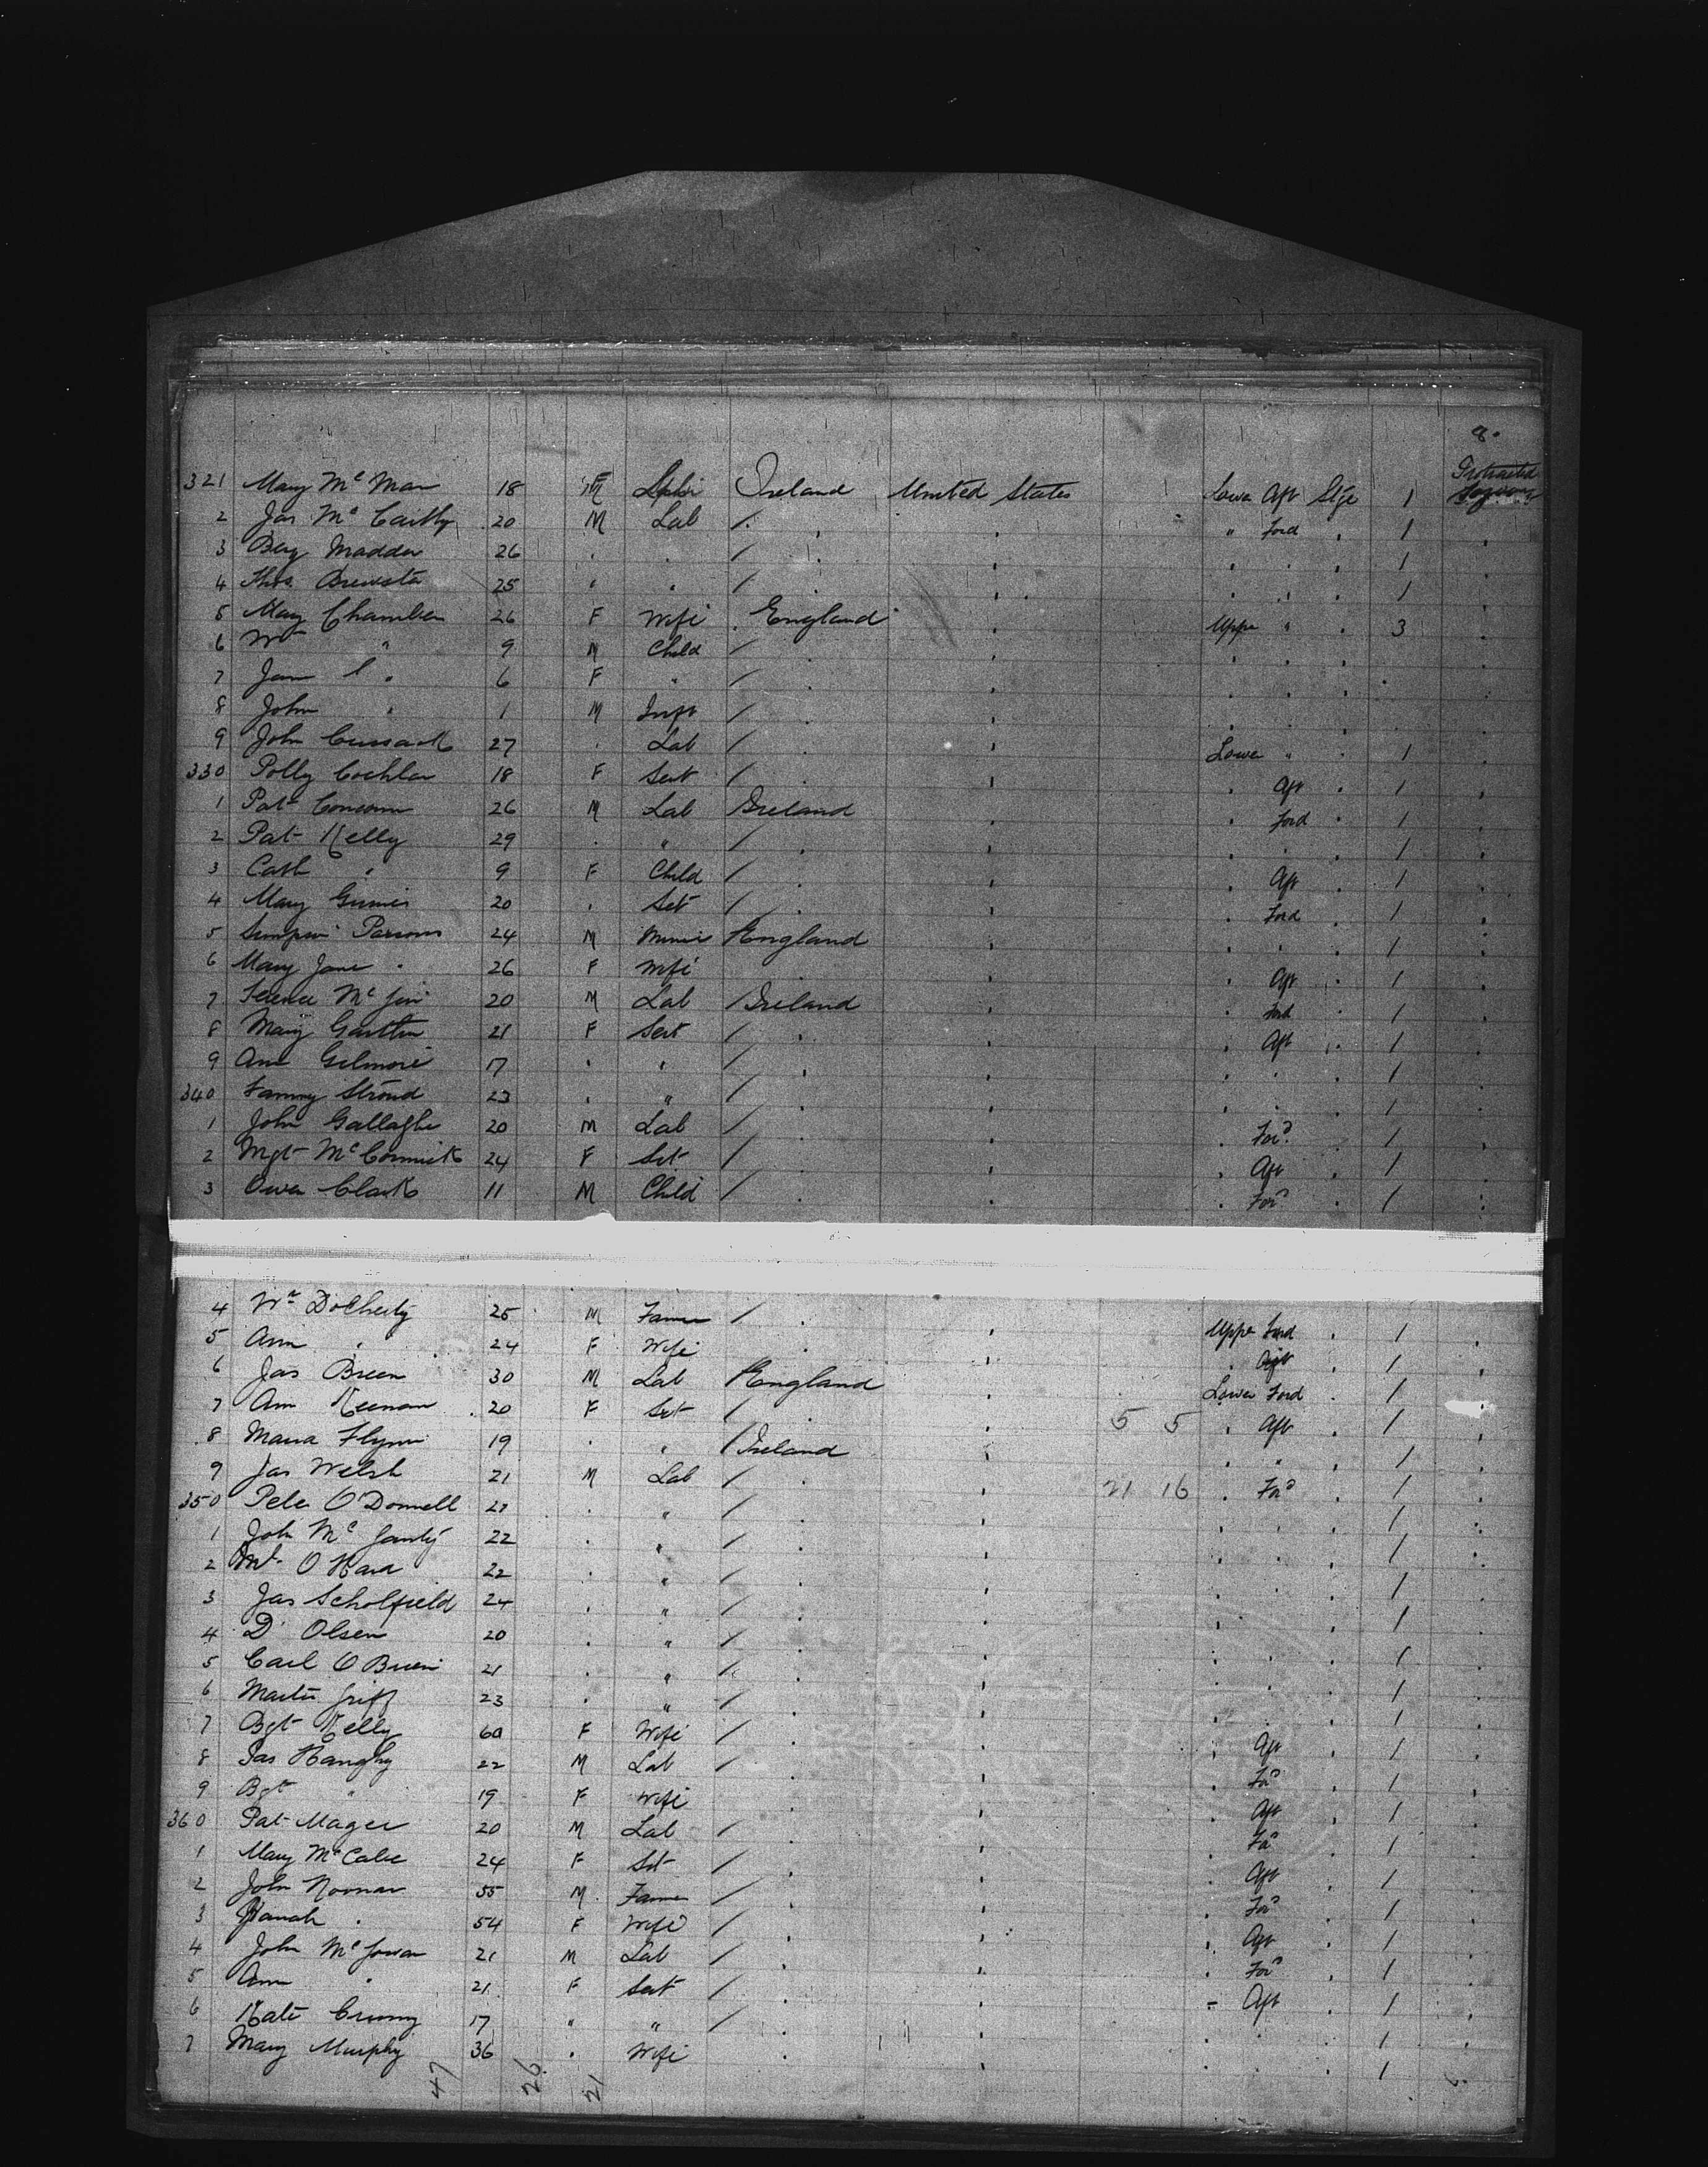 8.
321 Mary Mc Man 18 F Ireland United States Lower Aft Stge 1 Protracted
2 Jas Mc Carthy 20 M Lab / " Ford . 1
3 Benj Madden 26 . . / . . . 1
4 Thos. Brewster 25 . " / . . . 1
5 Mary Chamber 26 F Wife England Upper " . 3
6 Wm " 9 M Child /
7 Jane " 6 F " /
8 John " 1 M Inft /
9 John Cussack 27 . Lab / Lower " . 1
330 Polly Cochlan 18 F Sert / . Aft . 1
1 Pat 26 M Lab Ireland . Ford . 1
2 Pat Kelly 29 . " / . . . 1
3 Cath " 9 F Child / . Aft . 1
4 Mary 20 . Set / . Ford . 1
5 Parsons 24 M England . . . 1
6 Mary Jane . 26 F Wife . Aft . 1
7 20 M Lab / Ireland . Ford . 1
8 Mary 21 F Sert / . Aft . 1
9 Ann Gilmore 17 . . / . . . 1
340 Fanny Stroud 23 . " / . . . 1
1 John Gallagher 20 M Lab / . Ford . 1
2 Mgt McCormick 24 F Set / . Aft . 1
3 Owen Clark 11 M Child / . Ford . 1
4 Wm Docherty 25 M Farmer / Upper Ford . 1
5 Ann . 24 F Wife . Aft . 1
6 Jas Breen 30 M Lab England Lower Ford . 1
7 Ann Keenan 20 F Set / 5 5 . Aft . 1
8 Maria Flynn 19 . . / Ireland . " . 1
9 Jas Welsh 21 M Lab / 21 16 . Ford . 1
350 Peter O'Donnell 21 . " / . . . 1
1 John 22 . " / . . . 1
2 O'Hara 22 . " / . . . 1
3 Jas Scholfield 24 . " / . . . 1
4 D Olsen 20 . " / . . . 1
5 Carl O Brien 21 . " / . . . 1
6 Martin 23 . " / . . . 1
7 Bgt Kelly 60 F Wife / . Aft . 1
8 Jas 22 M Lab / . Ford . 1
9 Bgt " 19 F Wife . Aft . 1
360 Pat Magee 20 M Lab / . Ford . 1
1 Mary McCabe 24 F Set / . Aft . 1
2 John Noonan 55 M. Farmer / . Ford . 1
3 Hanah . 54 F Wife / . Aft . 1
4 John 21 M Lab / . Ford . 1
5 Ann " 21 F Sert / - Aft . 1
6 Kate 17 " " / . . . 1
7 Mary Murphy 36 . Wife . . . 1
47 26 21